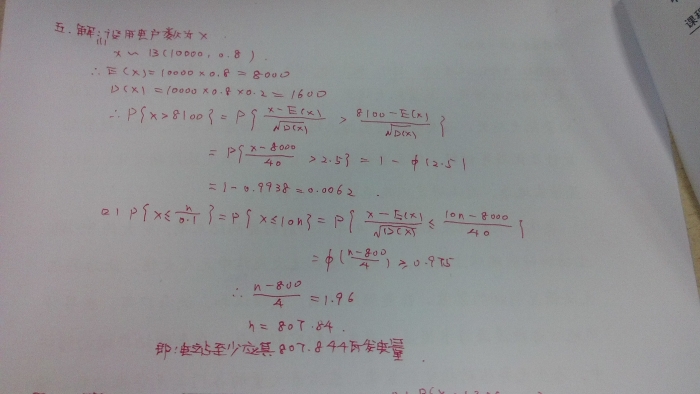 五. 解: 设用电户数为 x
(1)
x ~ B(10000, 0.8).
∴ E(x) = 10000 × 0.8 = 8000
D(x) = 10000 × 0.8 × 0.2 = 1600
∴ P{x > 8100} = P{ (x-E(x))/√D(x) > (8100-E(x))/√D(x) }
= P{ (x-8000)/40 > 2.5 } = 1 - ϕ(2.5)
= 1 - 0.9938 = 0.0062.
(2) P{x ≤ n/0.1} = P{x ≤ 10n} = P{ (x-E(x))/√D(x) ≤ (10n-8000)/40 }
= ϕ( (n-800)/4 ) ≥ 0.975
∴ (n-800)/4 = 1.96
n = 807.84.
即: 电站至少应具807.84千瓦发电量